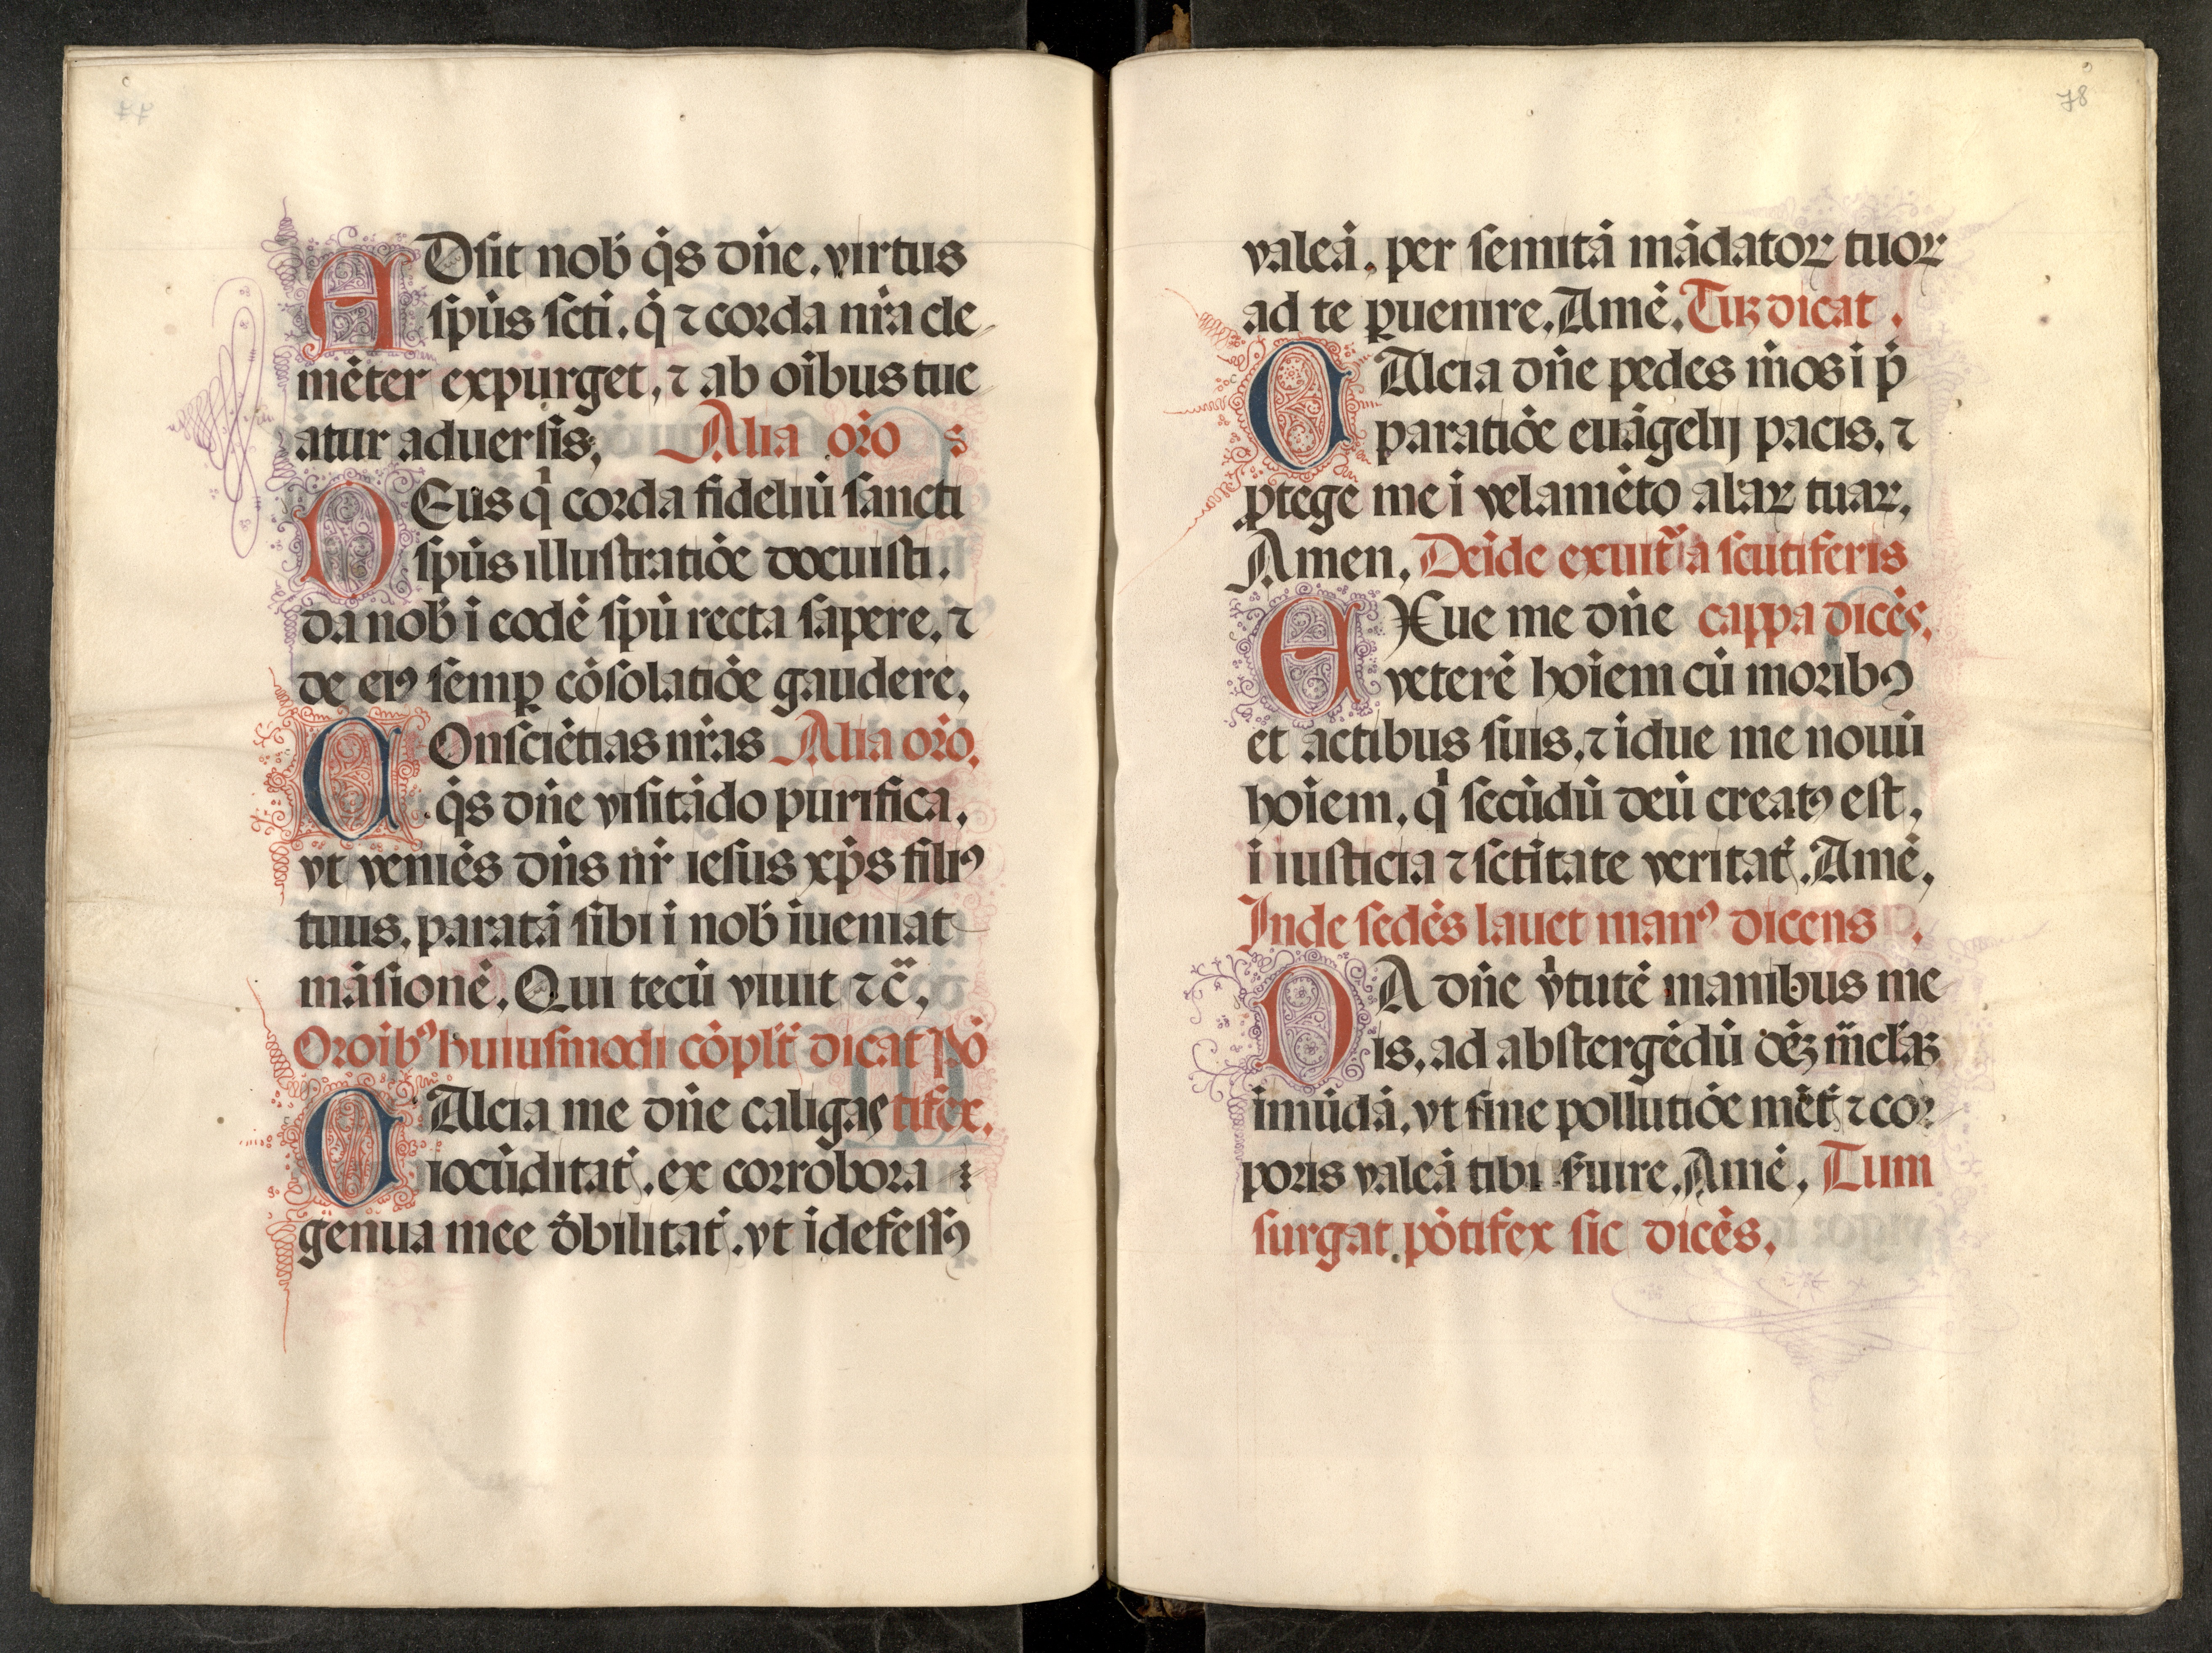 77
ADsit nob̄ q̇s dn̄e. virtus
sṗus scti. q̇ ⁊ corda nr̄a cle
mēter expurget, ⁊ ab oībus tue
atur aduersis; Alia oro s
DEus q̇ corda fideliū sancti
sṗus illustratiōe docuisti.
da nob̄ ī eodē spū recta sapere, ⁊
de eiꝰ semꝑ cōsolatiōe gaudere.
COnsciētias nr̄as Alia oro.
q̇s dn̄e visitādo purifica,
vt veniēs dn̄s nr̄ iesus xp̄s filiꝰ
tuus, paratā sibi ī nob̄ īueniat
māsionē. Qui tecū viuit ⁊c̄,
Oroībꝰ huiusmodi cōplt̄ dicat Pō
CAlcia me dn̄e caligas tifex.
iocūditat̄. ex corrobora
genua mee d̄bilitat̄. vt īdefessꝰ
78
valeā, per semitā mādatoꝝ tuoꝝ
ad te ꝑuenire. Amē. Tūc dicat.
CAlcia dn̄e pedes m̄os ī p̄
paratiōe euāgelij pacis, ⁊
ꝓtege me ī velamēto alaꝝ tuaꝝ,
Amen. Deīde exuit̄ a scutiferis
EXue me dn̄e cappa dicēs.
veterē hoīem cū moribꝰ
et actibus suis, ⁊ īdue me nouū
hoīem, q̇ secūdū deū creatꝰ est,
ī iusticia ⁊ sctītate veritat̄. Amē.
Inde sedēs lauet manꝰ dicens.
DA dn̄e v̇tutē manibus me
is, ad abstergēdū oēꝫ m̄claꝫ
īmūdā, vt sine pollutiōe mēt̄ ⁊ cor
poris valeā tibi s̄uire. Amē. Tum
surgat pōtifex sic dicēs.